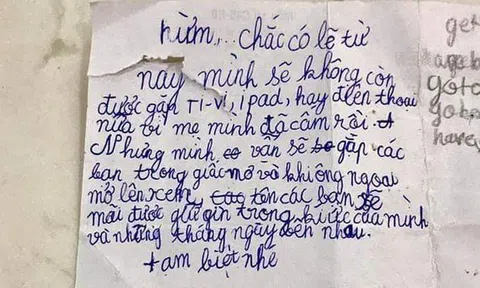 hừm, chắc có lẽ từ
nay mình sẽ không còn
được gặp TI-VI, Ipad, hay điện thoại
nữa vì mẹ mình đã câm rồi.
Nhưng mình vẫn sẽ gặp các
bạn trong giấc mơ và khi ông ngoại
mở lên xem, tên các bạn sẽ
mãi được giữ gìn trong kí ức của mình
và những tháng ngày bên nhau.
tạm biệt nhé
get
go
have